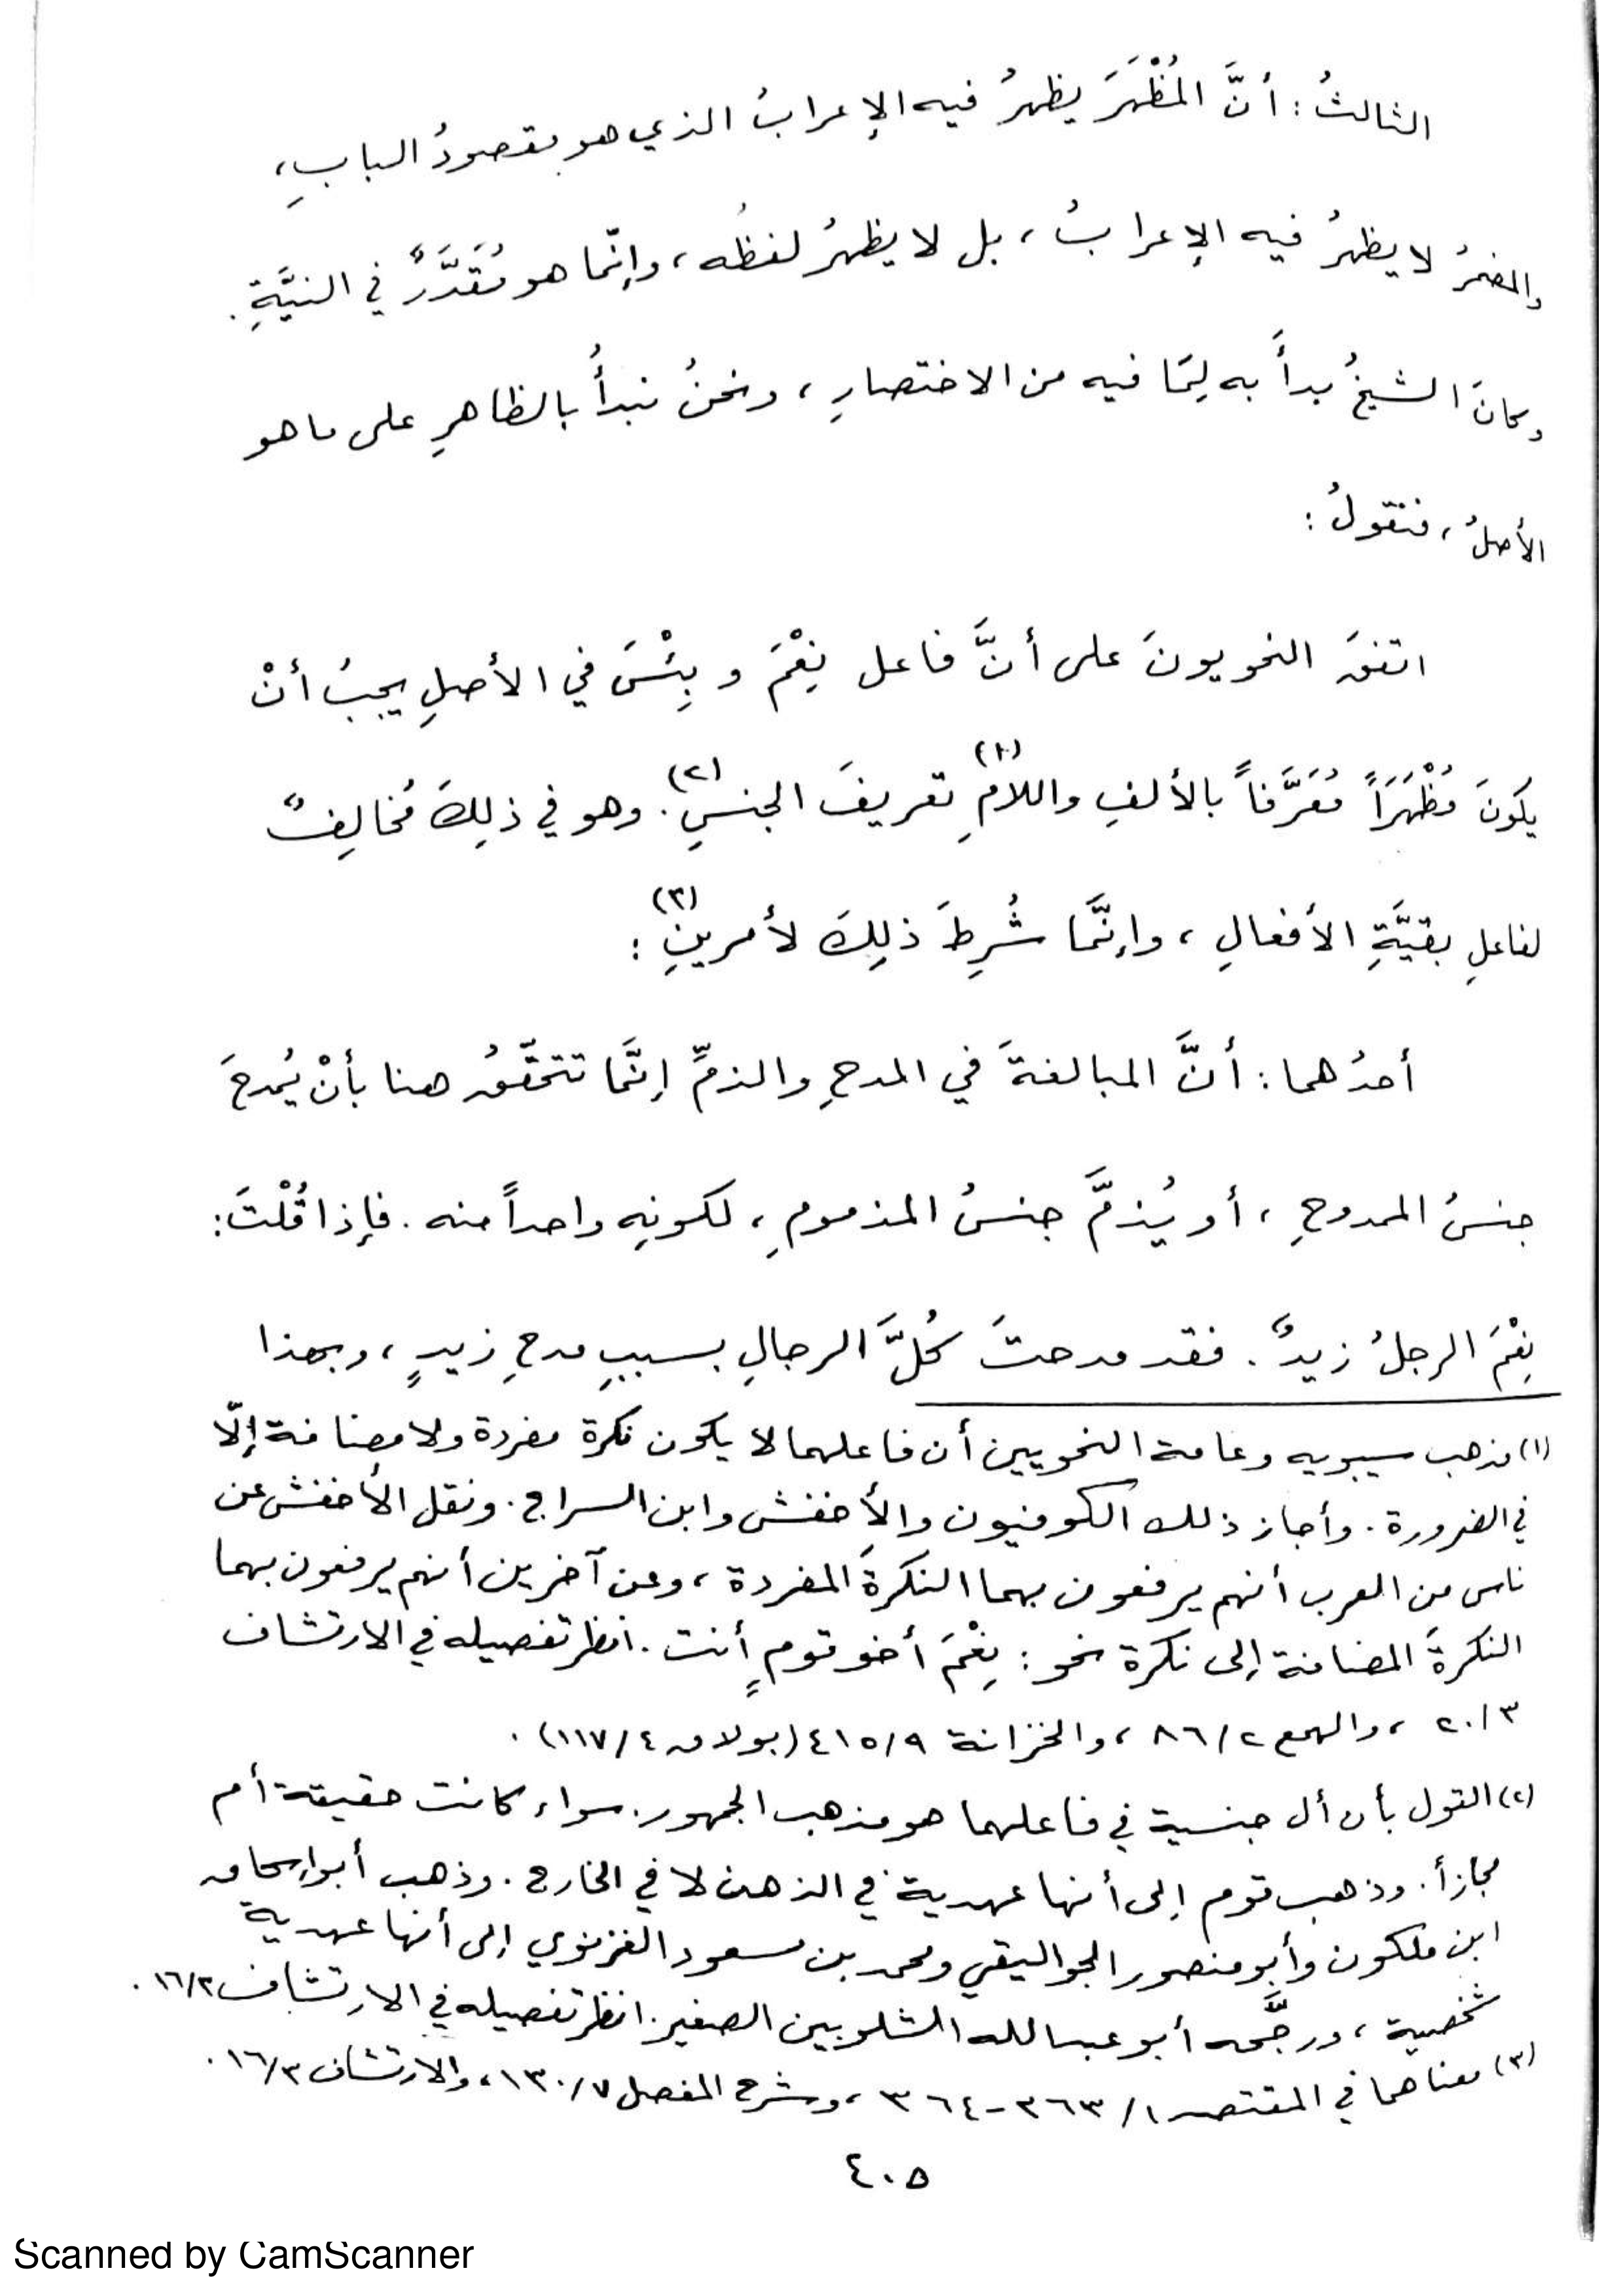 الثالثُ : أنَّ المُظْهَرَ يظهرُ فيه الإعرابُ الذي هو مقصودُ البابِ،
والمضمرُ لا يظهرُ فيه الإعرابُ ، بل لا يظهرُ لفظُه ، وإنّما هو مُقَدَّرٌ في النيَّةِ .
وكانَ الشيخُ بدأَ به لِمَا فيه من الاختصارِ ، ونحنُ نبدأُ بالظاهرِ على ما هو
الأصلُ ، فنقولُ :
اتفقَ النحويونَ على أنَّ فاعل نِعْمَ و بِئْسَ في الأصلِ يجبُ أنْ
يكونَ مُظْهَرَاً مُعَرَّفاً بالألفِ واللامِ(١) تعريفَ الجنسِ(٢). وهو في ذلِكَ مُخالِفٌ
لفاعلِ بقيَّةِ الأفعالِ ، وإنَّما شُرِطَ ذلِكَ لأمرينِ(٣) :
أحدُهما : أنَّ المبالغةَ في المدحِ والذمِّ إنَّما تتحقّقُ هنا بأنْ يُمدحَ
جنسُ الممدوحِ ، أو يُذمَّ جنسُ المذمومِ ، لكونِه واحداً منه . فإذا قُلْتَ :
نِعْمَ الرجلُ زيدٌ . فقد مدحتَ كُلَّ الرجالِ بسببِ مدحِ زيدٍ ، وبهذا
(١) مذهب سيبويه وعامة النحويين أن فاعلهما لا يكون نكرة مفردة ولا مضافة إلّا
في الضرورة . وأجاز ذلك الكوفيون والأخفش وابن السراج . ونقل الأخفش عن
ناس من العرب أنهم يرفعون بهما النكرةَ المفردة ، وعن آخرين أنهم يرفعون بهما
النكرةَ المضافة إلى نكرة نحو : نِعْمَ أخو قومٍ أنت . انظر تفصيله في الارتشاف
٢٠/٣ ، والهمع ٨٦/٢ ، والخزانة ٤١٥/٩ (بولاق ١١٧/٤) .
(٢) القول بأن أل جنسية في فاعلهما هو مذهب الجمهور . سواء كانت حقيقة أم
مجازاً . وذهب قوم إلى أنها عهدية في الذهن لا في الخارج . وذهب أبو إسحاق
ابن ملكون وأبو منصور الجواليقي ومحمد بن مسعود الغزنوي إلى أنها عهدية
شخصية ، ورجَّحه أبو عبد الله الشلوبين الصغير . انظر تفصيله في الارتشاف ١٦/٣ .
(٣) معناهما في المقتصد ٣٦٣/١-٣٦٤ ، وشرح المفصل ١٣٠/٧ ، والارتشاف ١٦/٣ .
٤٠٥
Scanned by CamScanner